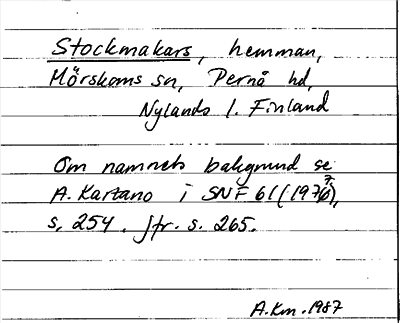 Stockmakars, hemman,
Mörskoms sn, Pernå hd,
Nylands l. Finland
Om namnets bakgrund se
A. Kartano i SNF 61 (1976),
s. 254. Jfr. s. 265.
A.Km. 1987